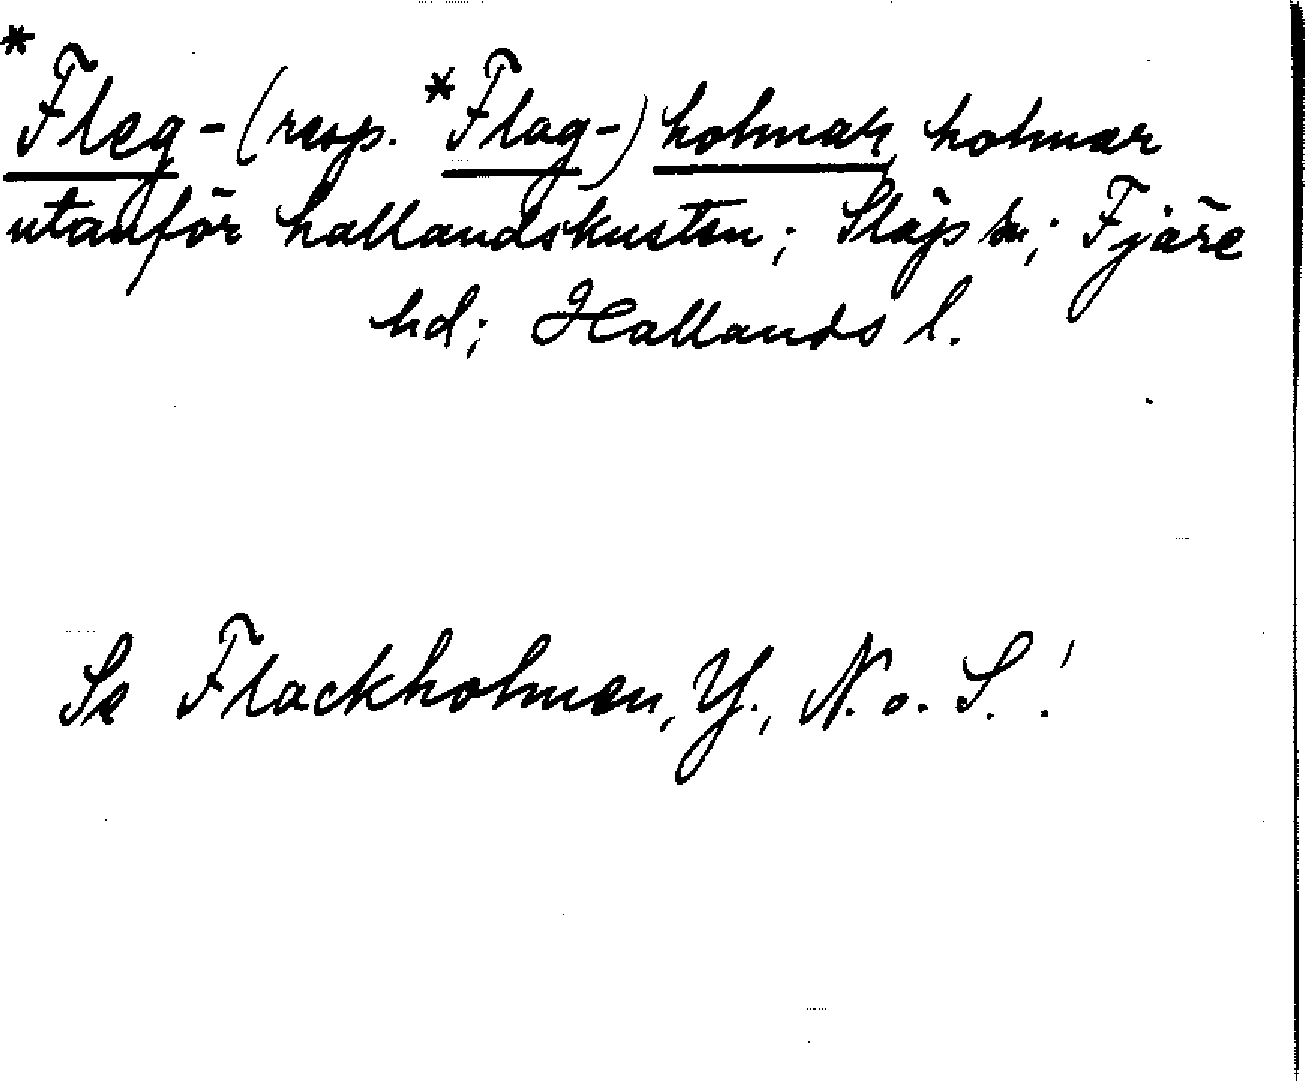 *Fleg-(resp. *Flag-)holmar, holmar
utanför hallandskusten; Släp sn; Fjäre
hd; Hallands l.
Se Flackholmen, Y., N. o. S.!